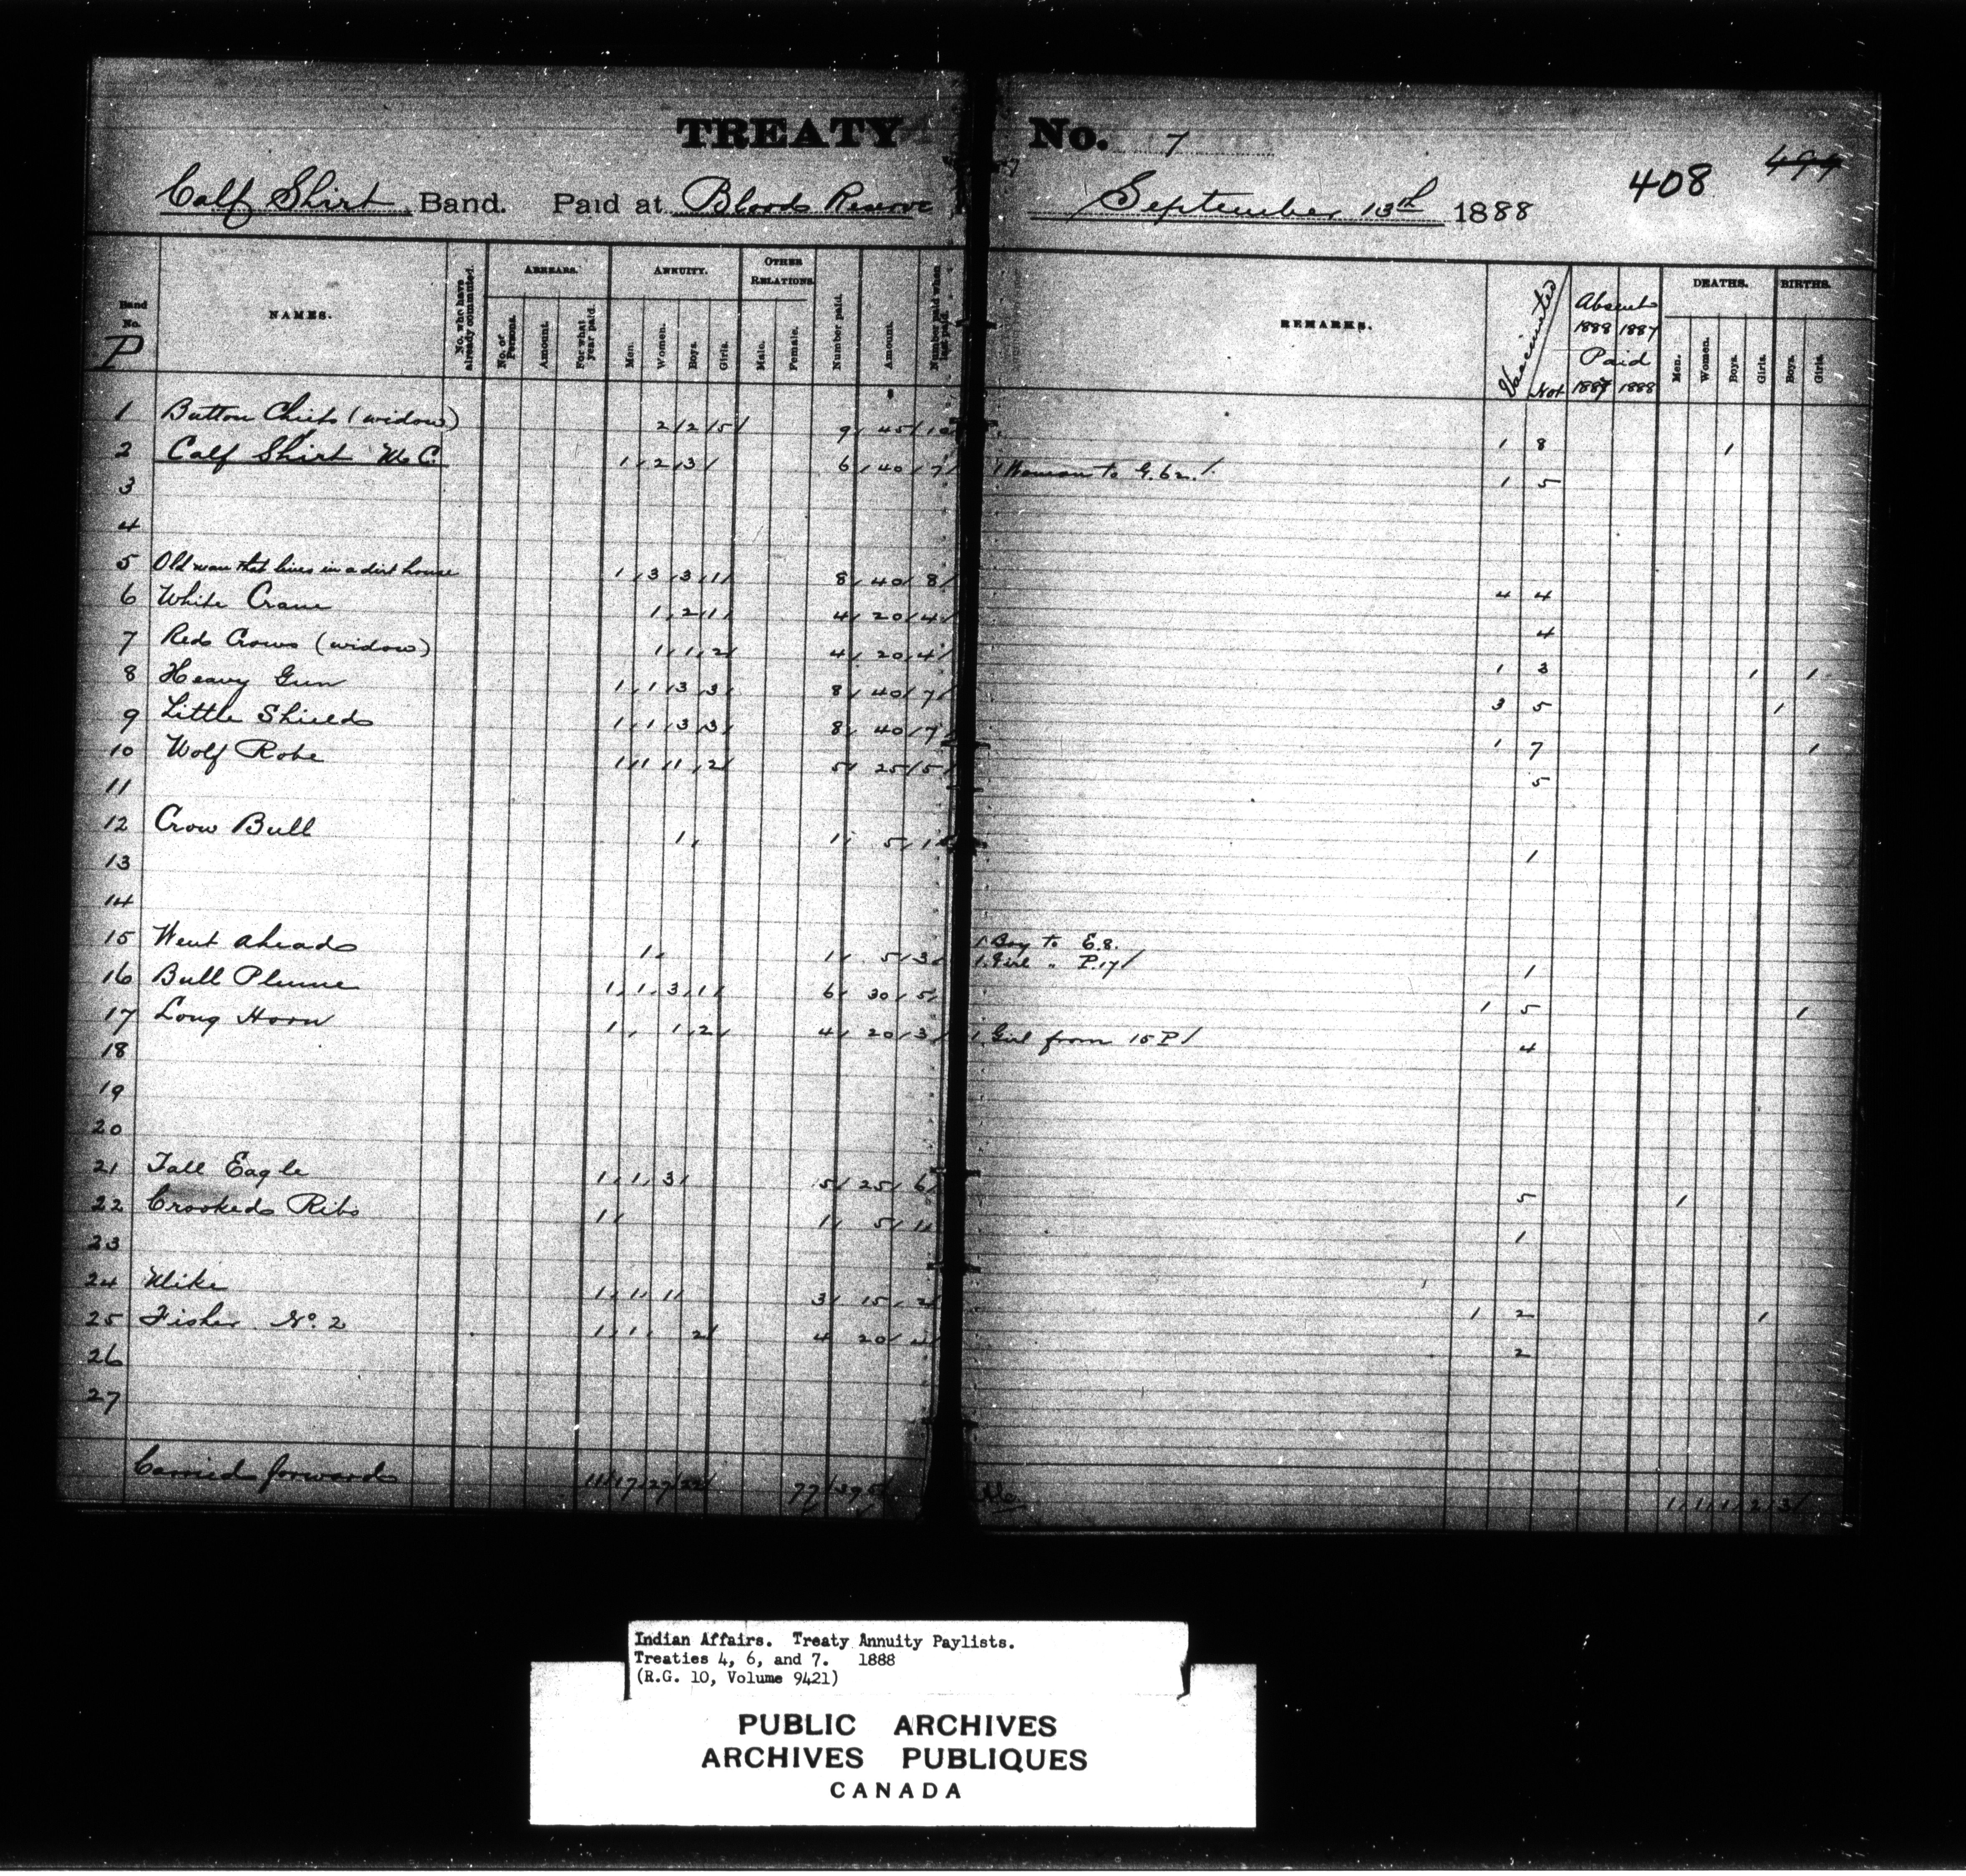 TREATY No. 7
408 499
Calf Shirt Band. Paid at Bloods Reserve September 13th 1888
Band No. P
NAMES.
No. who have already commuted.
ARREARS.
No. of Persons.
Amount.
For what year paid.
ANNUITY.
Men.
Women.
Boys.
Girls.
OTHER RELATIONS.
Male.
Female.
Number paid.
Amount.
Number paid when last paid.
REMARKS.
Vaccinated
Not
Absent
1888 1887
Paid
1887 1888
DEATHS.
Men.
Women.
Boys.
Girls.
BIRTHS.
Boys.
Girls.
1 Button Chiefs (widow) 2 2 5 9 45 10 1 8 1
2 Calf Shirt M.C. 1 2 3 6 40 7 1 Woman to G.62. 1 5
3
4
5 Old man that lives in a dirt house 1 3 3 1 8 40 8 4 4
6 White Crane 1 2 1 4 20 4 4
7 Reds Crows (widow) 1 1 2 4 20 4 1 3 1 1
8 Heavy Gun 1 1 3 3 8 40 7 3 5 1
9 Little Shields 1 1 3 3 8 40 7 1 7 1
10 Wolf Robe 1 1 1 2 5 25 5 5
11
12 Crow Bull 1 1 5 1 1
13
14
15 Went aheads 1 1 5 3 1 Boy to E.8.
1 Girl " P.17 1
16 Bull Plume 1 1 3 1 6 30 5 1 5 1
17 Long Horn 1 1 2 4 20 3 1 Girl from 15 P 4
18
19
20
21 Tall Eagle 1 1 3 5 25 6 5 1
22 Crookeds Ribs 1 1 5 1 1
23
24 Mike 1 1 1 3 15 2 1 2 1
25 Fisher No. 2 1 1 2 4 20 4 2
26
27
Carried forwards 11 17 27 22 77 395 1 1 1 2 3
Indian Affairs. Treaty Annuity Paylists.
Treaties 4, 6, and 7. 1888
(R.G. 10, Volume 9421)
PUBLIC ARCHIVES
ARCHIVES PUBLIQUES
CANADA